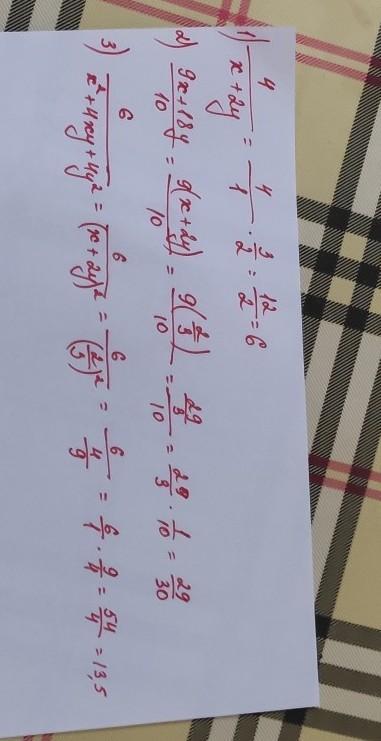 1) 4/(x+2y) = 4/1 · 3/2 = 12/2 = 6
2) (9x+18y)/10 = 9(x+2y)/10 = 9(2/3)/10 = (29/3)/10 = 29/3 · 1/10 = 29/30
3) 6/(x²+4xy+4y²) = 6/(x+2y)² = 6/(2/3)² = 6/(4/9) = 6/1 · 9/4 = 54/4 = 13,5